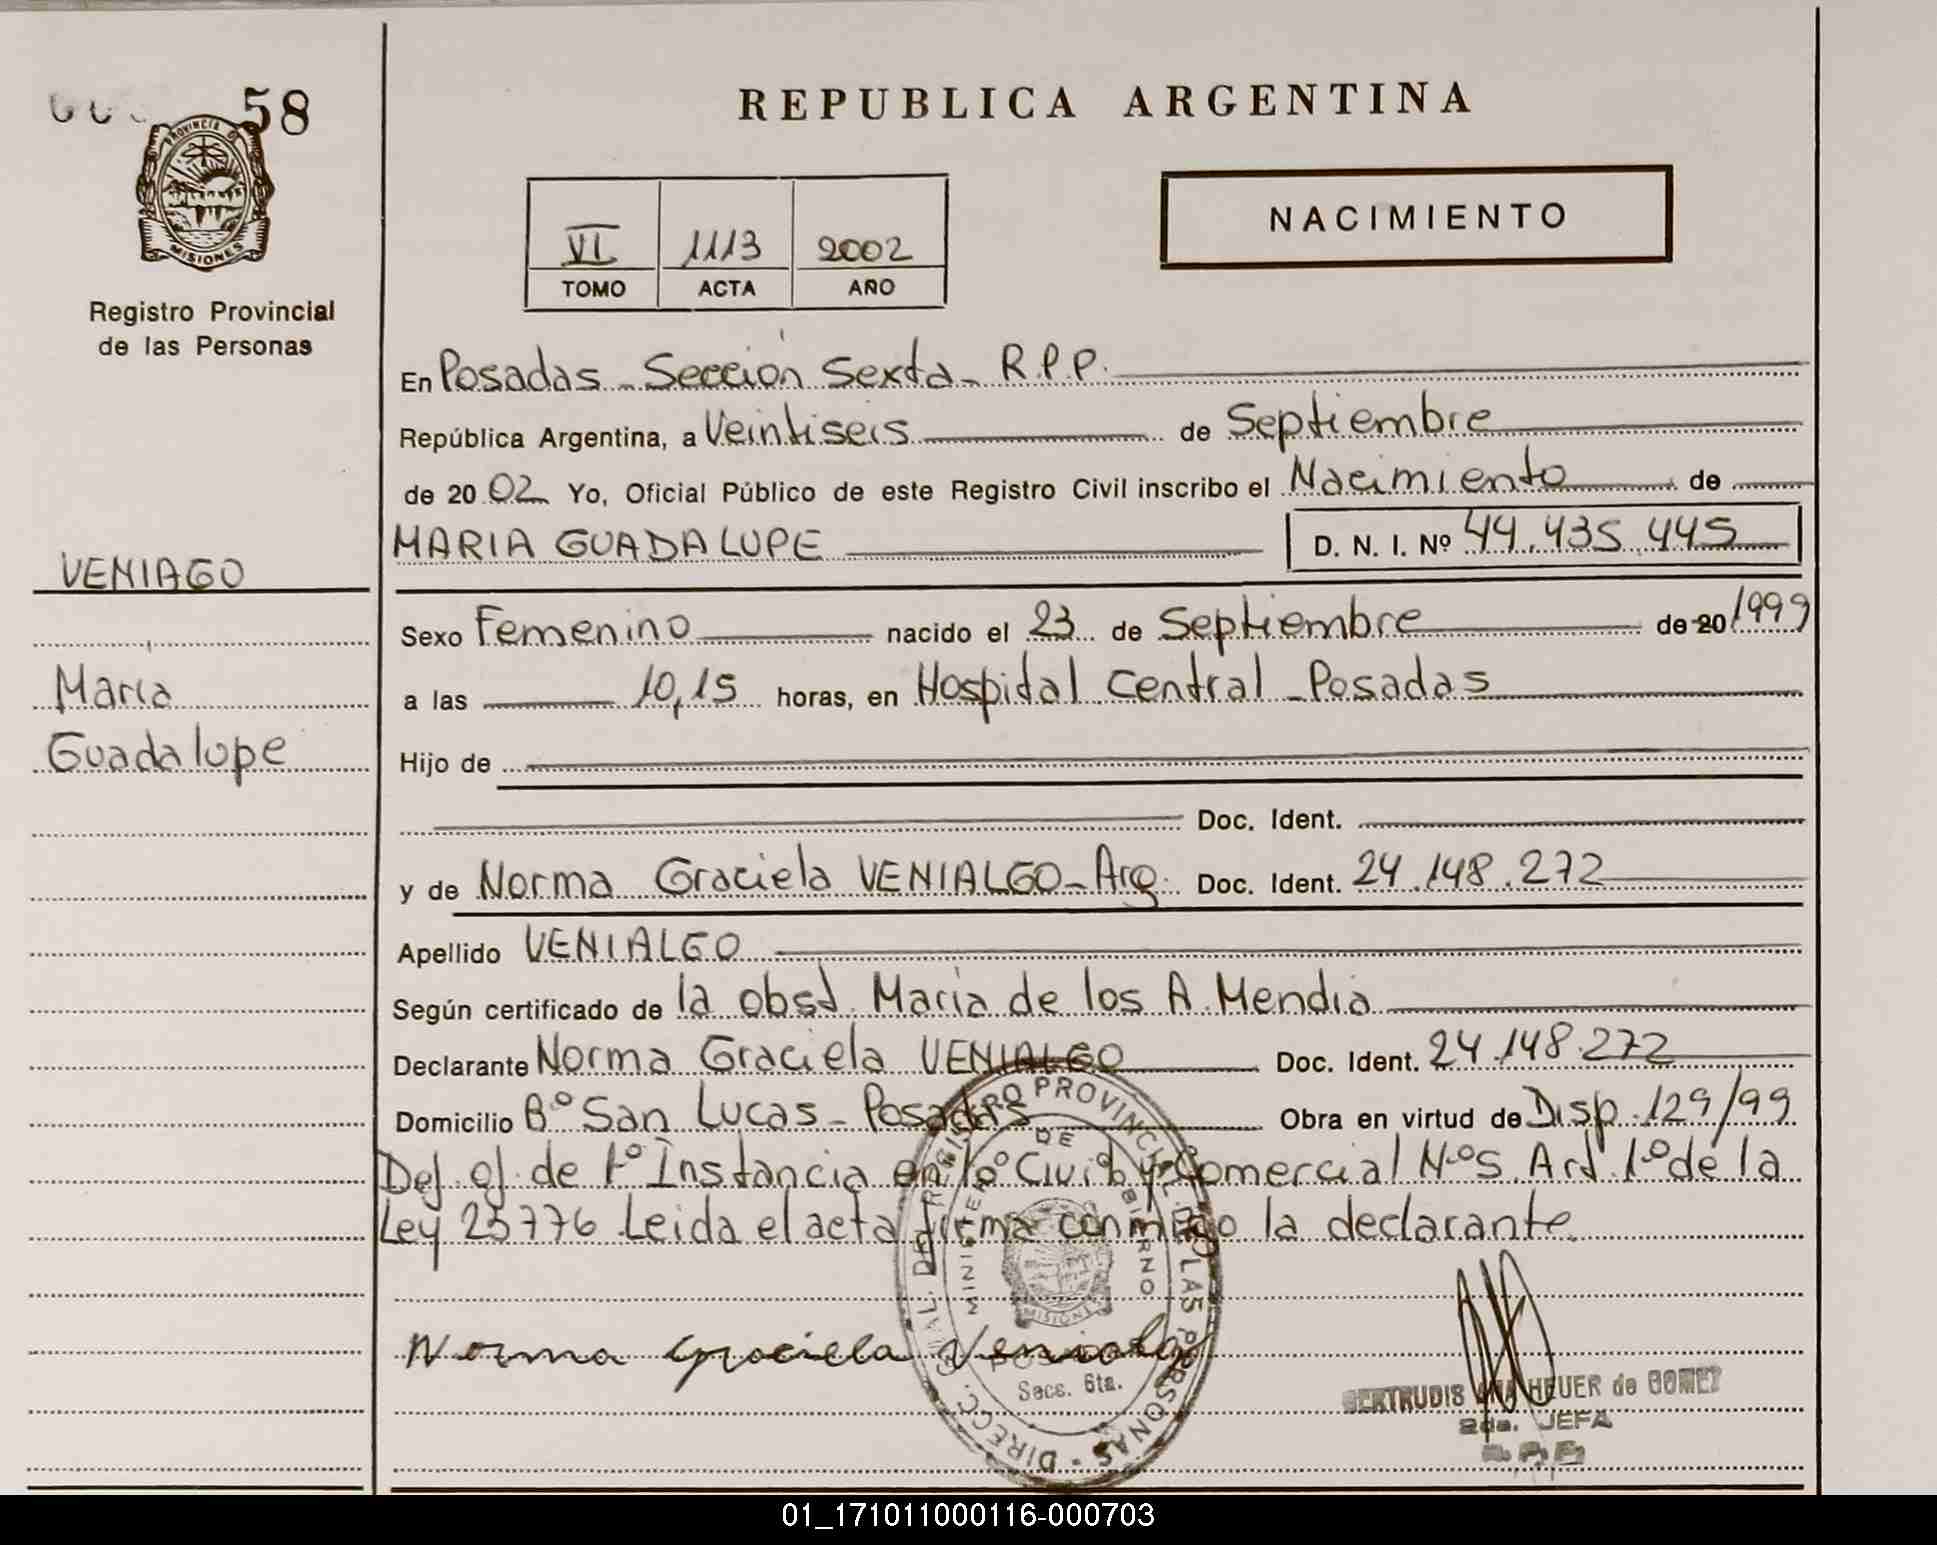 58
PROVINCIA DE
MISIONES
Registro Provincial
de las Personas
REPUBLICA ARGENTINA
NACIMIENTO
VI 1113 2002
TOMO ACTA AÑO
En Posadas - Sección Sexta - R.P.P.
República Argentina, a Veintiseis de Septiembre
de 20 02 Yo, Oficial Público de este Registro Civil inscribo el Nacimiento de
MARIA GUADALUPE D. N. I. Nº 44.435.445
VENIAGO
Sexo Femenino nacido el 23 de Septiembre de 20 1999
María
a las 10,15 horas, en Hospital Central - Posadas
Guadalupe
Hijo de
Doc. Ident.
y de Norma Graciela VENIALGO - Arg. Doc. Ident. 24.148.272
Apellido VENIALGO
Según certificado de la obst. María de los A. Mendia
Declarante Norma Graciela VENIALGO Doc. Ident. 24.148.272
Domicilio Bº San Lucas - Posadas Obra en virtud de Disp. 129/99
Def. of. de 1º Instancia en lo Civil y Comercial Nº 5. Art. 1º de la
Ley 23776 Leida el acta firma conmigo la declarante.
Norma Graciela Venialgo
DIRECC. GRAL. DE REGISTRO PROVINCIAL DE LAS PERSONAS
MINISTERIO DE GOBIERNO
MISIONES
Secc. 6ta.
GERTRUDIS ANA HEUER de GOMEZ
2da. JEFA
01_171011000116-000703